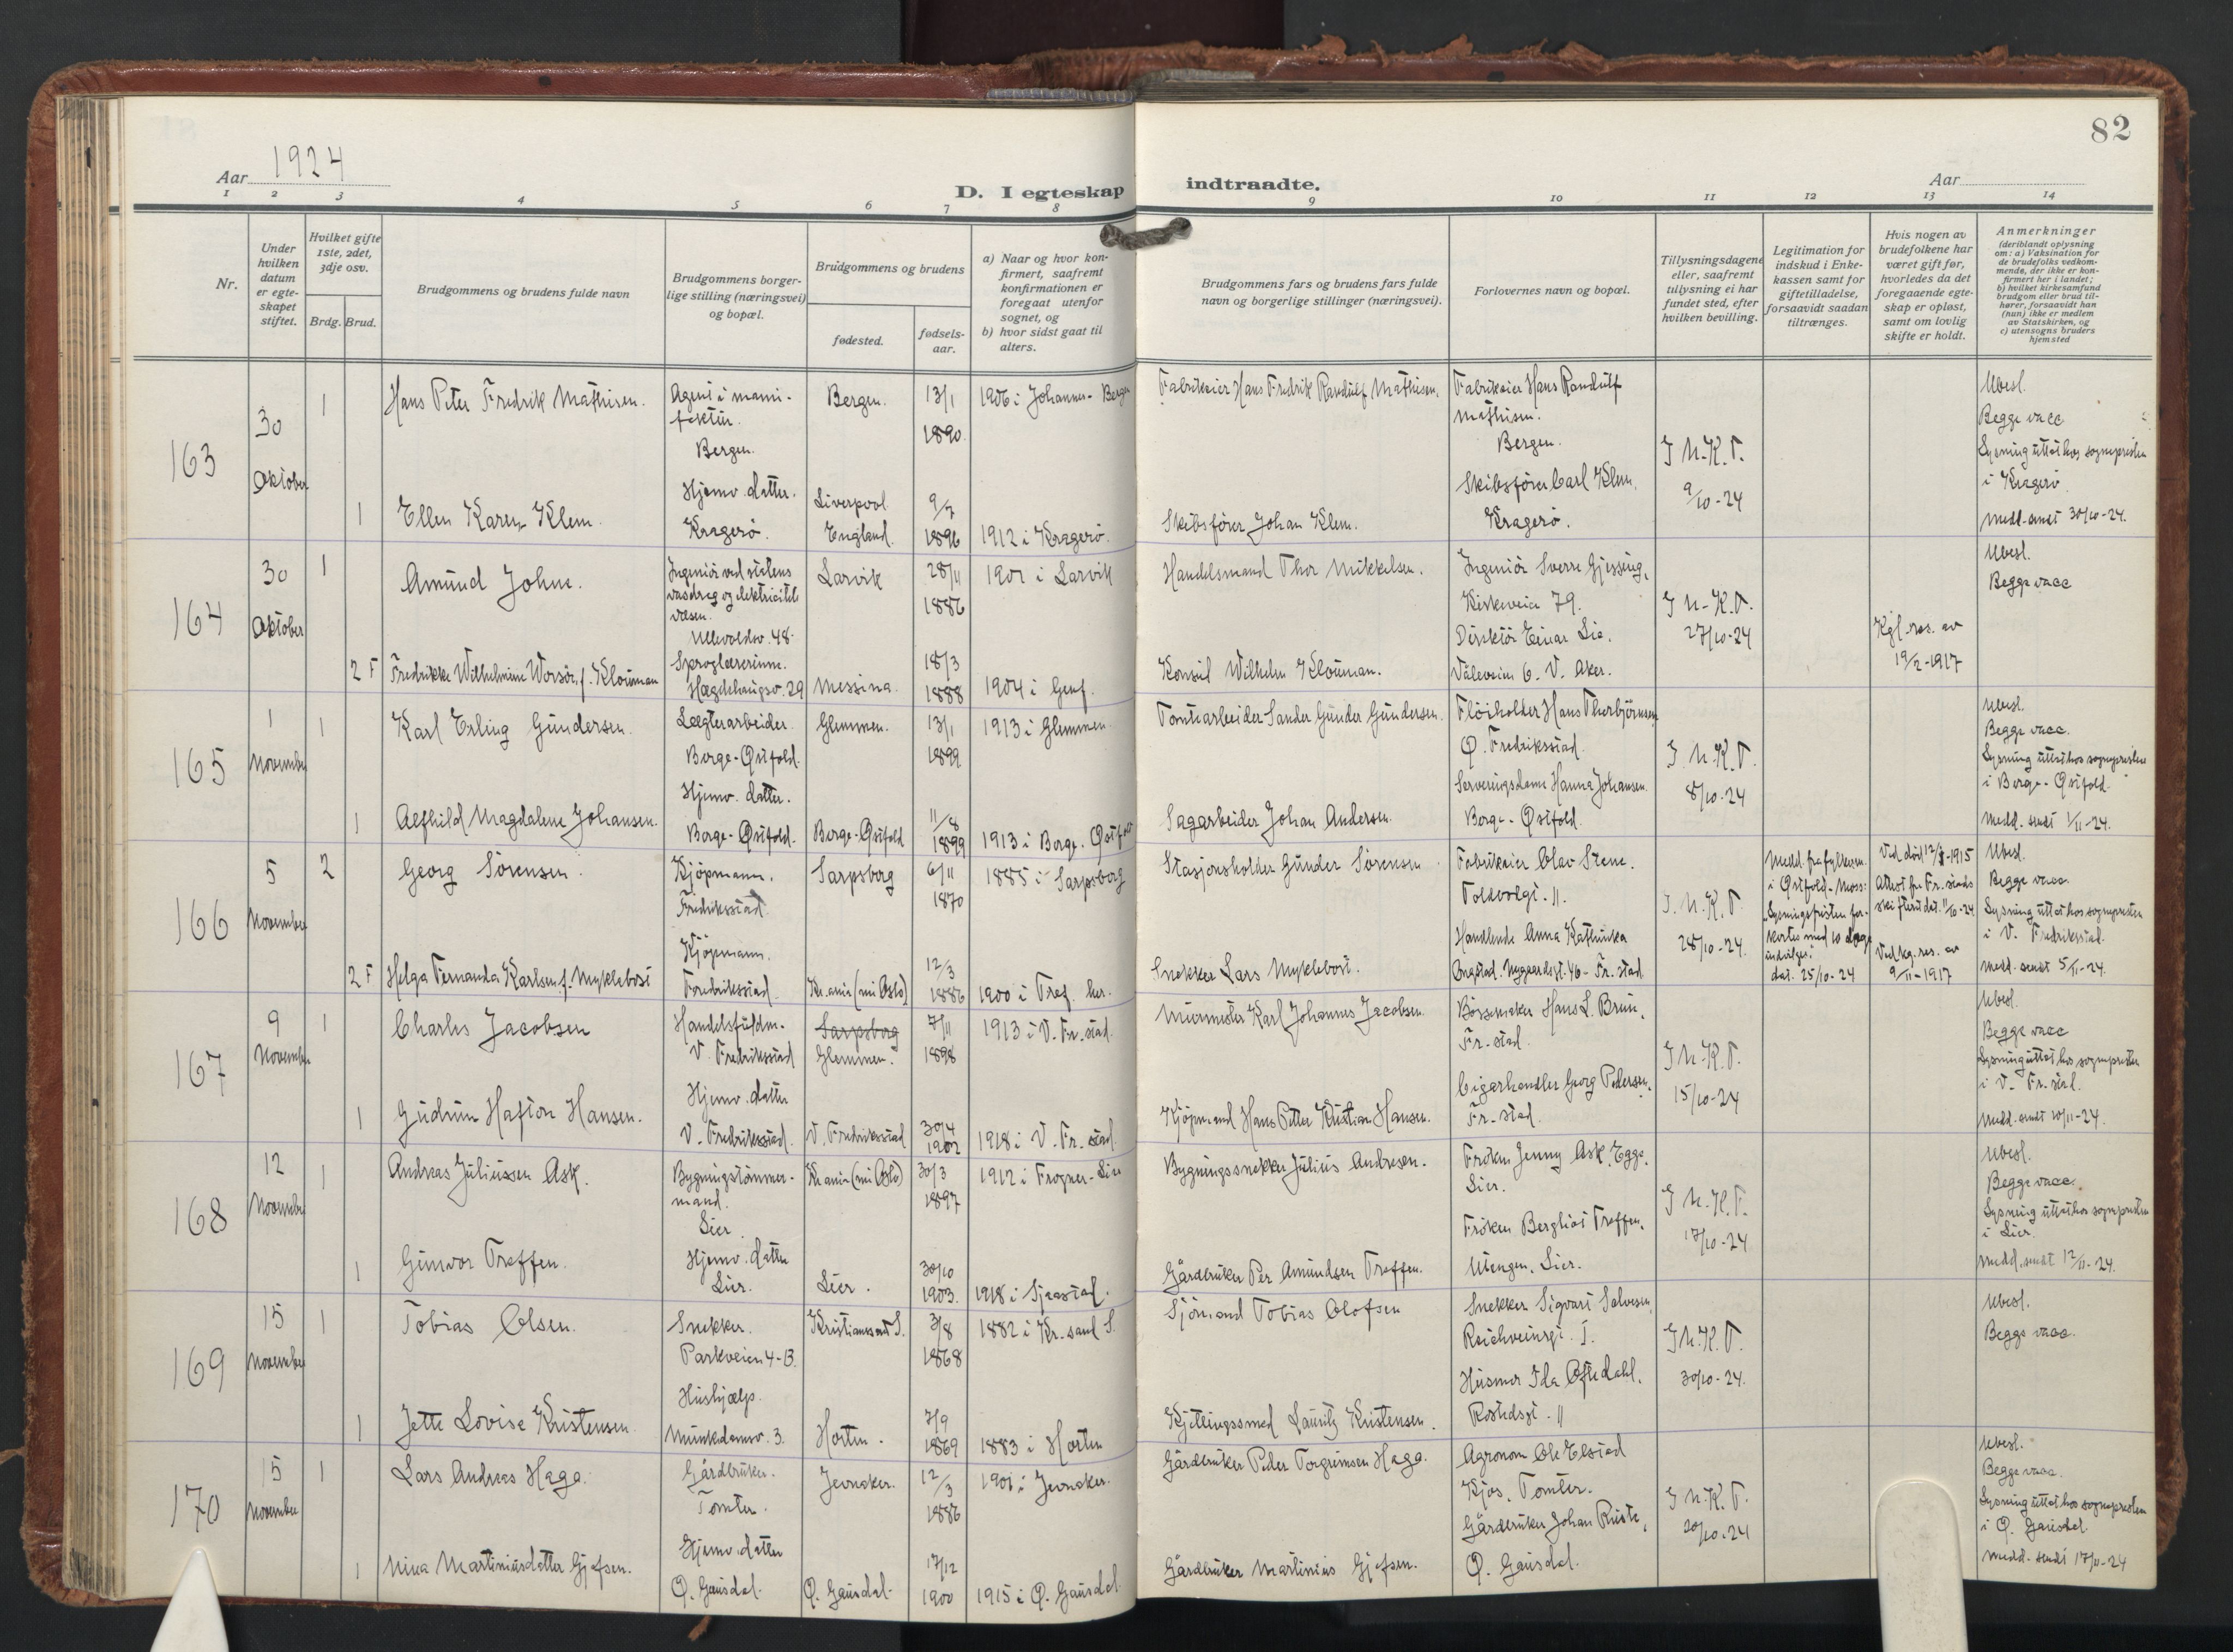 82
Aar 1924
D. I egteskap indtraadte.
Aar
1 2 3 4 5 6 7 8 9 10 11 12 13 14
Nr.
Under hvilken datum er egteskapet stiftet.
Hvilket gifte 1ste, 2det, 3dje osv.
Brdg. Brud.
Brudgommens og brudens fulde navn
Brudgommens borgerlige stilling (næringsvei) og bopæl.
Brudgommens og brudens
fødested.
fødselsaar.
a) Naar og hvor konfirmert, saafremt konfirmationen er foregaat utenfor sognet, og
b) hvor sidst gaat til alters.
Brudgommens fars og brudens fars fulde navn og borgerlige stillinger (næringsvei).
Forlovernes navn og bopæl.
Tillysningsdagene eller, saafremt tillysning ei har fundet sted, efter hvilken bevilling.
Legitimation for indskud i Enkekassen samt for giftetilladelse, forsaavidt saadan tiltrænges.
Hvis nogen av brudefolkene har været gift før, hvorledes da det foregaaende egteskap er opløst, samt om lovlig skifte er holdt.
Anmerkninger
(deriblandt oplysning om: a) Vaksination for de brudefolks vedkommende, der ikke er konfirmert her i landet;
b) hvilket kirkesamfund brudgom eller brud tilhører, forsaavidt han (hun) ikke er medlem av Statskirken, og
c) utensogns bruders hjemsted
163
30 Oktober
1 Hans Peter Fredrik Mathisen. Agent i manufaktur. Bergen. Bergen. 13/1 1890. 1906 i Johannes- Bergen
Fabrikeier Hans Fredrik Randulf Mathisen. Fabrikeier Hans Randulf Mathisen. Bergen.
1 Ellen Karen Klem. Hjemv. datter. Kragerö. Liverpool England. 9/7 1896 1912 i Kragerö.
Skibsförer Johan Klem. Skibsförer Carl Klem. Kragerö.
J N.K.T. 9/10-24
Ubesl. Begge vacc. Lysning uttat hos sognepresten i Kragerö. Medd. sendt 30/10-24.
164
30 Oktober
1 Amund Johne. Ingeniör ved statens vasdrag og elektricitets væsen. Ullevoldsv. 48. Larvik 28/11 1886 1901 i Larvik
Handelsmand Thor Mikkelsen. Ingeniör Sverre Gjessing, Kirkeveien 79.
2 F Fredrikke Wilhelmine Worsöe, f. Klouman Sproglærerinne. Hægdehaugsv. 29 Messina. 18/3 1888 1904 i Genf.
Konsul Wilhelm Klouman. Direktör Einar Lie. Våleveien 6. V. Aker.
J N.K.T. 27/10-24
Kgl. res. av 19/2-1917
Ubesl. Begge vacc
165
1 November
1 Karl Erling Gundersen. Lægterarbeider. Borge-Östfold. Glemmen. 13/1 1899 1913 i Glemmen.
Tomtearbeider Sander Gunder Gundersen. Flöiholder Hans Thorbjörnsen. Ö. Fredriksstad.
1 Alfhild Magdalene Johansen. Hjemv. datter. Borge-Östfold. Borge-Östfold 11/8 1899 1913 i Borge. Östfold
Sagarbeider Johan Andersen. Serveringsdame Hanna Johansen. Borge- Östfold.
J N.K.T. 8/10-24
Ubesl. Begge vacc. Lysning uttat hos sognepresten i Borge- Östfold. Medd. sendt 1/11-24.
166
5 November
2 Georg Sörensen. Kjöpmann. Fredriksstad. Sarpsborg 6/11 1870 1885 i Sarpsborg
Stasjonsholder Gunder Sörensen Fabrikeier Olav Stene. Toldbodgt. 11.
2 F Helga Fernanda Karlsen f. Myklebost Kjöpmann. Fredriksstad. Kr.ania (nu Oslo) 12/3 1886 1900 i Tref. her.
Snekker Lars Myklebost. Handlende Anna Kathinka Ongstad. Nygaardsgt. 46- Fr. stad.
J. N.K.T. 28/10-24.
Medd. fra fylkesm. i Östfold-Moss: "Lysningsfristen forkortes med 10 dage indvilges." dat. 25/10-24
Ved död 12/8-1915 Attest fra Fr. stads skifterud dat. 11/10-24 Ved kg. res. av 9/11-1917
Ubesl. Begge vacc. Lysning uttat hos sognepresten i V. Fredriksstad. Medd. sendt 5/11-24.
167
9 November
1 Charles Jacobsen Handelsfuldm. V. Fredriksstad Sarpsborg Glemmen. 7/11 1898 1913 i V. Fr. stad.
Murmester Karl Johannes Jacobsen. Börsemaker Hans L. Brun, Fr. stad.
1 Gudrun Hafton Hansen. Hjemv. datter V. Fredriksstad. V. Fredriksstad 30/4 1902 1918 i V. Fr. stad.
Kjöpmand Hans Petter Kristian Hansen. Cigarhandler Georg Pedersen. Fr. stad.
J N.K.T. 15/10-24
Ubesl. Begge vacc Lysning uttat hos sognepresten i V. Fr. stad. Medd. sendt 10/11-24.
168
12 November
1 Andreas Juliussen Ask. Bygningstömmermand. Lier. Kr.ania (nu Oslo) 30/3 1897 1912 i Frogner- Lier
Bygningssnekker Julius Andresen. Fröken Jenny Ask, Egge. Lier.
1 Gunvor Treffen. Hjemv. datter Lier. Lier. 30/10 1903. 1918 i Sjaastad.
Gårdbruker Per Amundsen Treffen. Fröken Bergliot Treffen. Utengen, Lier.
J N.K.T. 17/10-24
Ubesl. Begge vacc. Lysning uttat hos sognepresten i Lier. Medd. sendt 12/11-24.
169
15 November
1 Tobias Olsen. Snekker. Parkveien 4-B. Kristianssand S. 3/8 1868 1882 i Kr. sand S.
Sjömand Tobias Olofsen Snekker Sigvart Salvesen, Reichweinsgt. 1.
1 Jette Lovise Kristensen. Hushjælp. Munkedamsv. 3. Horten. 7/9 1869 1883 i Horten
Kjettingssmed Lauritz Kristensen. Husmor Ida Oftedahl. Rostedsgt. 11
J N.K.T. 30/10-24.
Ubesl. Begge vacc.
170
15 November
1 Lars Andreas Haga. Gårdbruker. Tomter. Jevnaker. 12/3 1886 1901 i Jevnaker.
Gårdbruker Peder Torgrimsen Haga. Agronom Ole Elstad Kjos, Tomter.
1 Nina Martiniusdatter Gjefsen. Hjemv. datter Ö. Gausdal. Ö. Gausdal. 17/12 1900 1915 i Ö. Gausdal.
Gårdbruker Martinius Gjefsen. Gårdbruker Johan Ruste, Ö. Gausdal.
J N.K.T. 20/10-24
Ubesl. Begge vacc. Lysning uttat hos sognepresten i Ö. Gausdal. Medd. sendt 17/11-24